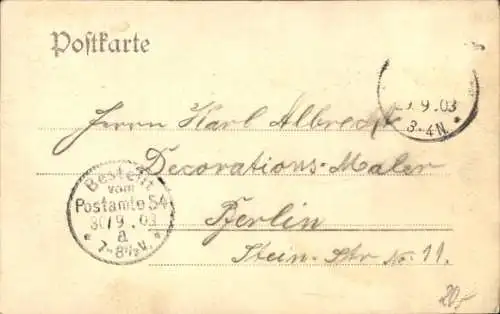 Postkarte
29.9.03
3-4N.
Herrn Karl Albrecht
Decorations-Maler
Berlin
Stein-Str No. 11.
Bestellt
vom
Postamte 54
30/9.03
a
7-8½V.
20,-